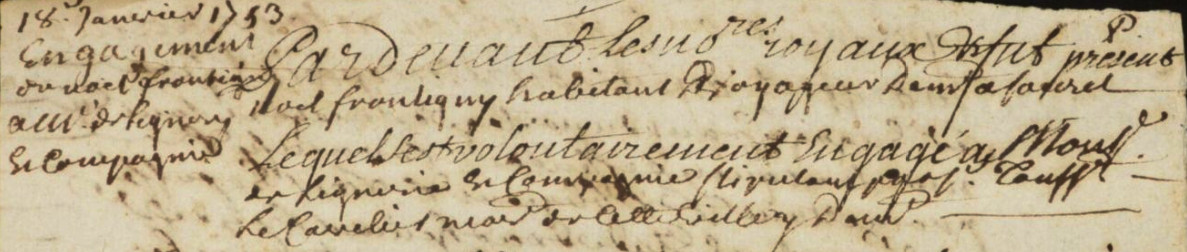 18e. Janvier 1753
Engagement
de noel frontigny
a Mr. de Lignery
& Compagnie
Pardevant les nores. royaux &c fut present
Noel frontigny habitant & voyageur demt a
Lequel s'est volontairement Engagé a Monsr.
de Lignerie & Compagnie stipulant par
Le Cavelier mard de cette ville y demt